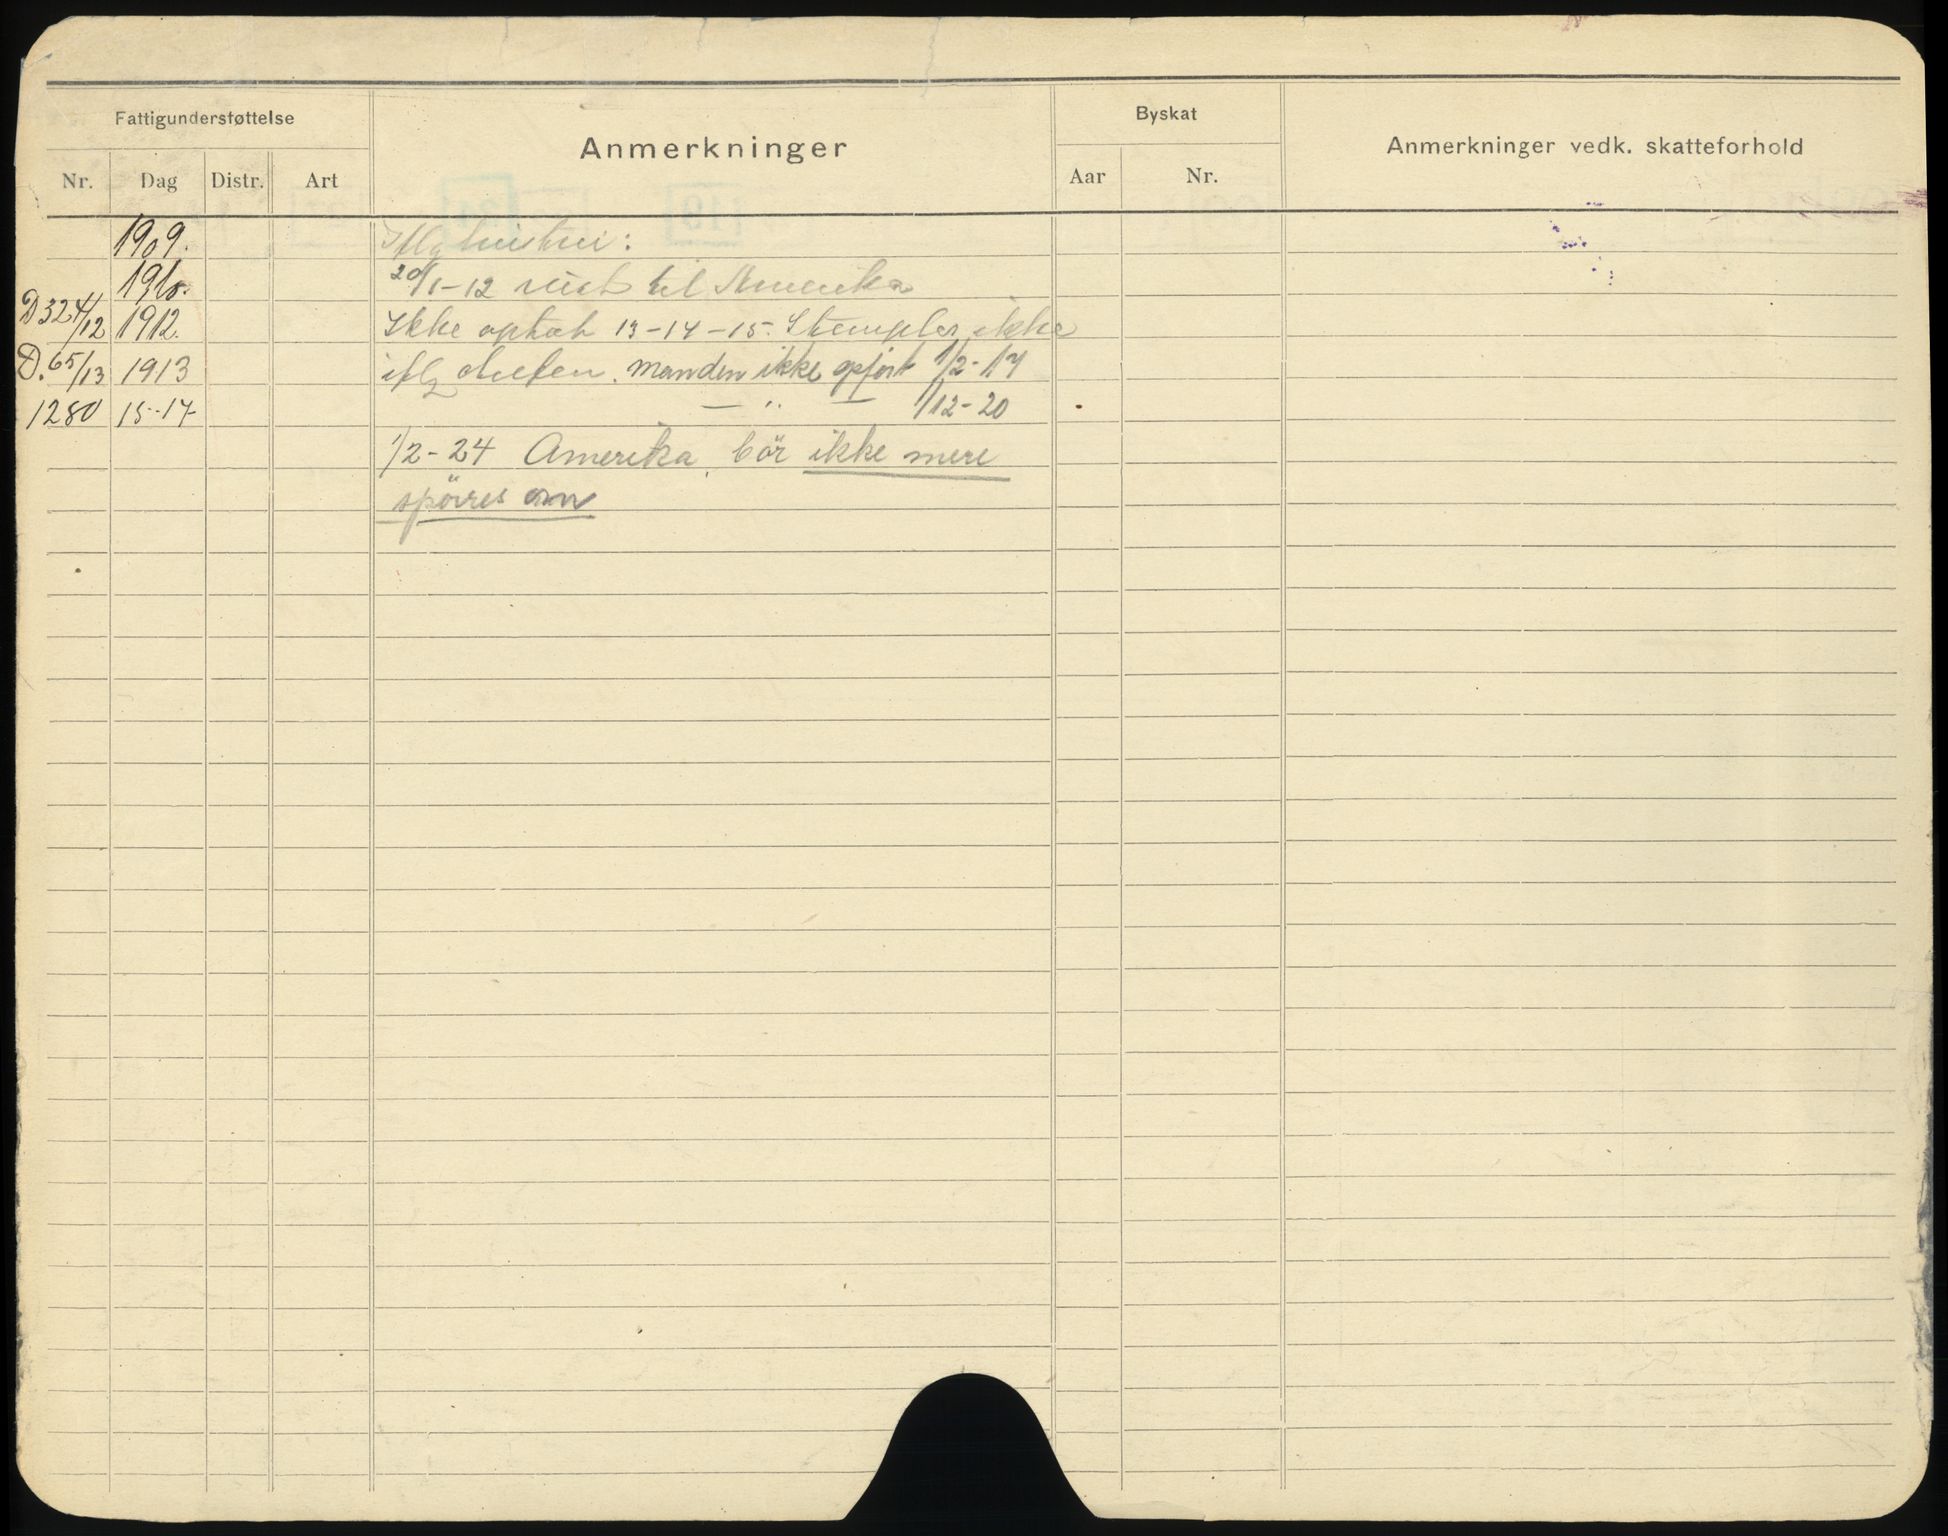 Fattigunderstøttelse
Anmerkninger
Byskat
Anmerkninger vedk. skatteforhold
Nr. Dag Distr. Art
Aar Nr.
1909. Iflg hustru:
1910. 20/1-12 reist til Amerika
D 324/12 1912. Ikke optat 13-14-15. Stemples ikke
D. 65/13 1913 iflg chefen. Manden ikke opført 1/2-17
1280 15-17 — " — 1/12-20
1/2-24 Amerika, bör ikke mere
spörres om